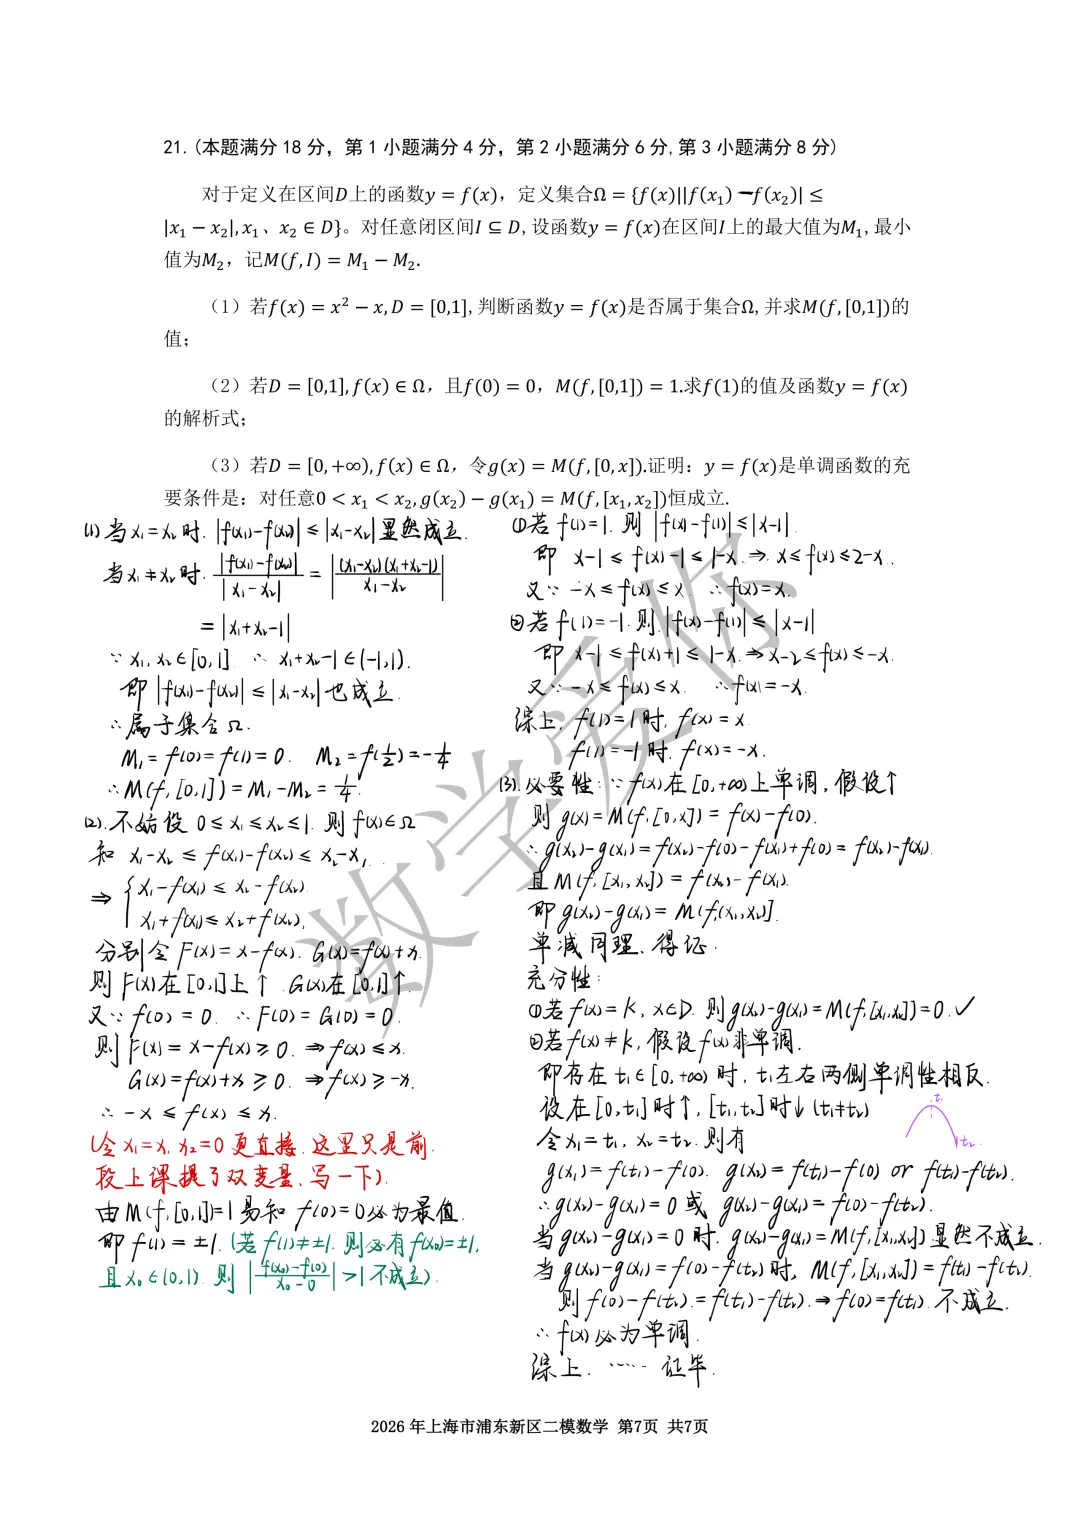 21.(本题满分 18 分, 第 1 小题满分 4 分, 第 2 小题满分 6 分,第 3 小题满分 8 分)
对于定义在区间D上的函数y = f(x)，定义集合Ω = {f(x)||f(x₁) − f(x₂)| ≤
|x₁ − x₂|, x₁、x₂ ∈ D}。对任意闭区间I ⊆ D, 设函数y = f(x)在区间I上的最大值为M₁, 最小
值为M₂，记M(f, I) = M₁ − M₂.
（1）若f(x) = x² − x, D = [0,1], 判断函数y = f(x)是否属于集合Ω, 并求M(f, [0,1])的
值;
（2）若D = [0,1], f(x) ∈ Ω，且f(0) = 0，M(f, [0,1]) = 1.求f(1)的值及函数y = f(x)
的解析式;
（3）若D = [0, +∞), f(x) ∈ Ω，令g(x) = M(f, [0, x]).证明：y = f(x)是单调函数的充
要条件是：对任意0 < x₁ < x₂, g(x₂) − g(x₁) = M(f, [x₁, x₂])恒成立.
(1) 当x₁=x₂时. |f(x₁)-f(x₂)| ≤ |x₁-x₂| 显然成立.
当x₁≠x₂时. |f(x₁)-f(x₂)| / |x₁-x₂| = |(x₁-x₂)(x₁+x₂-1) / x₁-x₂|
= |x₁+x₂-1|
∵ x₁, x₂∈[0,1] ∴ x₁+x₂-1∈(-1,1).
即 |f(x₁)-f(x₂)| ≤ |x₁-x₂| 也成立.
∴属于集合Ω.
M₁ = f(0) = f(1) = 0. M₂ = f(½) = -¼
∴M(f, [0,1]) = M₁-M₂ = ¼.
(2). 不妨设 0≤x₁≤x₂≤1. 则 f(x)∈Ω
知 x₁-x₂ ≤ f(x₁)-f(x₂) ≤ x₂-x₁,
⇒ { x₁-f(x₁) ≤ x₂-f(x₂)
x₁+f(x₁) ≤ x₂+f(x₂).
分别令 F(x) = x-f(x). G(x)=f(x)+x.
则 F(x)在[0,1]上↑. G(x)在[0,1]↑.
又∵ f(0) = 0. ∴ F(0) = G(0) = 0.
则 F(x) = x-f(x) ≥ 0. ⇒ f(x) ≤ x.
G(x) = f(x)+x ≥ 0. ⇒ f(x) ≥ -x.
∴ -x ≤ f(x) ≤ x.
(令x₁=x, x₂=0更直接. 这里只是前.
段上课提了双变量, 写一下).
由M(f, [0,1])=1易知 f(0)=0必为最值.
即 f(1) = ±1. (若 f(1)≠±1. 则必有f(x₀)=±1,
且 x₀∈(0,1). 则 |f(x₀)-f(0) / x₀-0| >1 不成立).
①若 f(1)=1. 则 |f(x)-f(1)| ≤ |x-1|.
即 x-1 ≤ f(x)-1 ≤ 1-x. ⇒ x ≤ f(x) ≤ 2-x.
又∵ -x ≤ f(x) ≤ x ∴ f(x)=x.
②若 f(1)=-1. 则 |f(x)-f(1)| ≤ |x-1|
即 x-1 ≤ f(x)+1 ≤ 1-x. ⇒ x-2 ≤ f(x) ≤ -x.
又∵ -x ≤ f(x) ≤ x. ∴ f(x) = -x.
综上, f(1)=1时, f(x)=x
f(1)=-1时. f(x)=-x.
(3). 必要性: ∵ f(x)在[0,+∞)上单调, 假设↑
则 g(x) = M(f, [0,x]) = f(x)-f(0).
∴ g(x₂)-g(x₁) = f(x₂)-f(0)-f(x₁)+f(0) = f(x₂)-f(x₁).
且 M(f, [x₁,x₂]) = f(x₂)-f(x₁).
即 g(x₂)-g(x₁) = M(f,(x₁,x₂].
单减同理. 得证.
充分性:
①若 f(x)=k, x∈D. 则g(x₂)-g(x₁)=M(f,[x₁,x₂])=0. ✓
②若 f(x)≠k, 假设 f(x)非单调.
即存在 t₁∈[0,+∞)时, t₁左右两侧单调性相反.
设在[0,t₁]时↑, [t₁,t₂]时↓ (t₁≠t₂)
t₁
t₂
令 x₁=t₁, x₂=t₂. 则有
g(x₁) = f(t₁)-f(0). g(x₂) = f(t₁)-f(0) or f(t₁)-f(t₂).
∴g(x₂)-g(x₁) = 0 或 g(x₂)-g(x₁) = f(0)-f(t₂).
当g(x₂)-g(x₁) = 0时. g(x₂)-g(x₁) = M(f,[x₁,x₂])显然不成立.
当 g(x₂)-g(x₁) = f(0)-f(t₂)时, M(f,[x₁,x₂]) = f(t₁)-f(t₂).
则 f(0)-f(t₂) = f(t₁)-f(t₂). ⇒ f(0)=f(t₁). 不成立.
∴ f(x)必为单调.
综上. …… 证毕.
数学爱你
2026 年上海市浦东新区二模数学 第7页 共7页